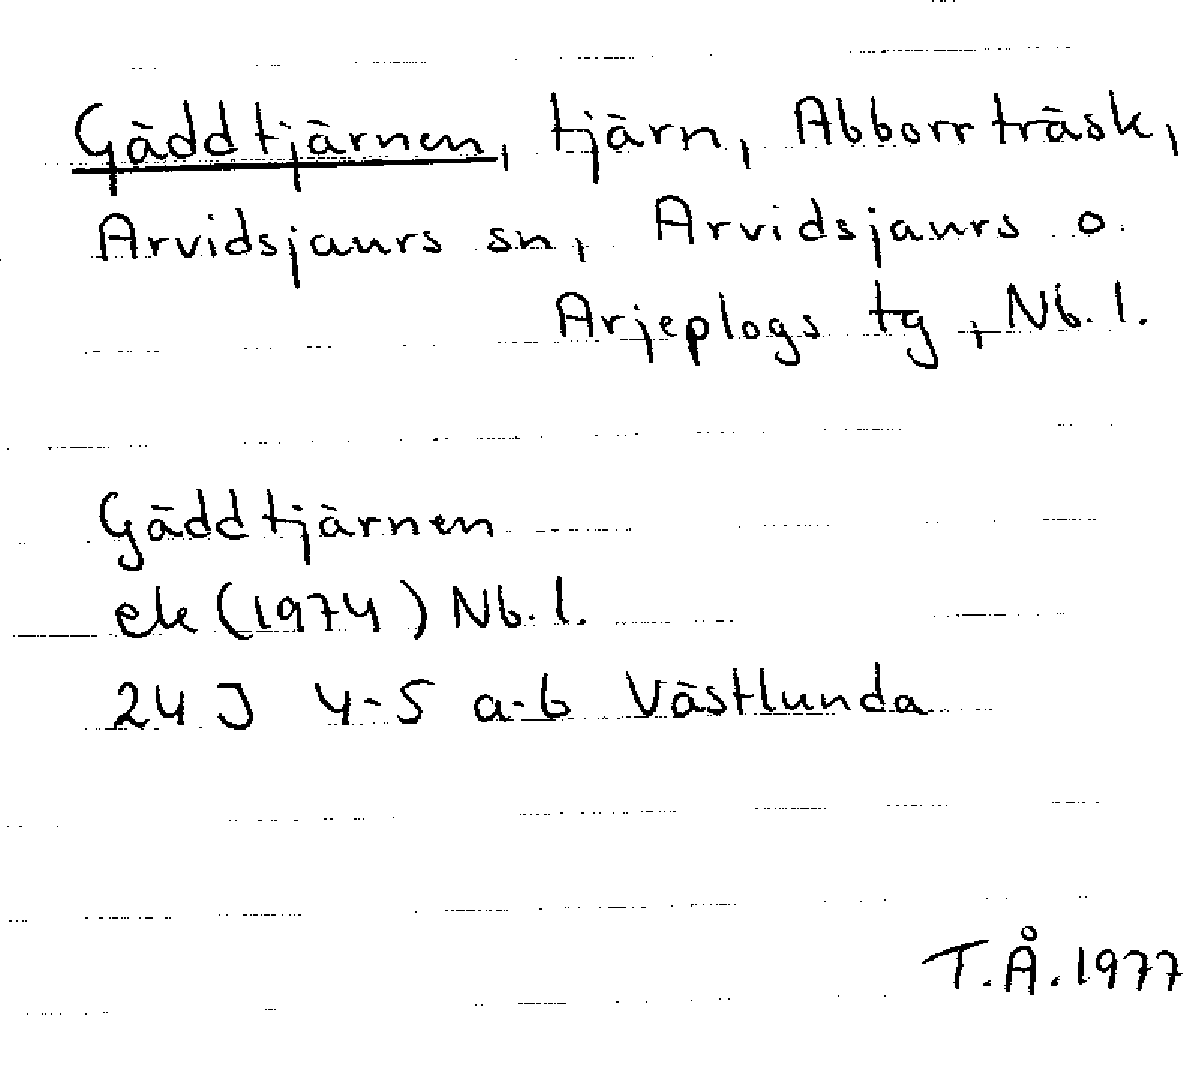 Gäddtjärnen, tjärn, Abborrträsk,
Arvidsjaurs sn, Arvidsjaurs o.
Arjeplogs tg, Nb. l.
Gäddtjärnen
ek (1974) Nb. l.
24 J 4-5 a-b Västlunda
T.Å. 1977